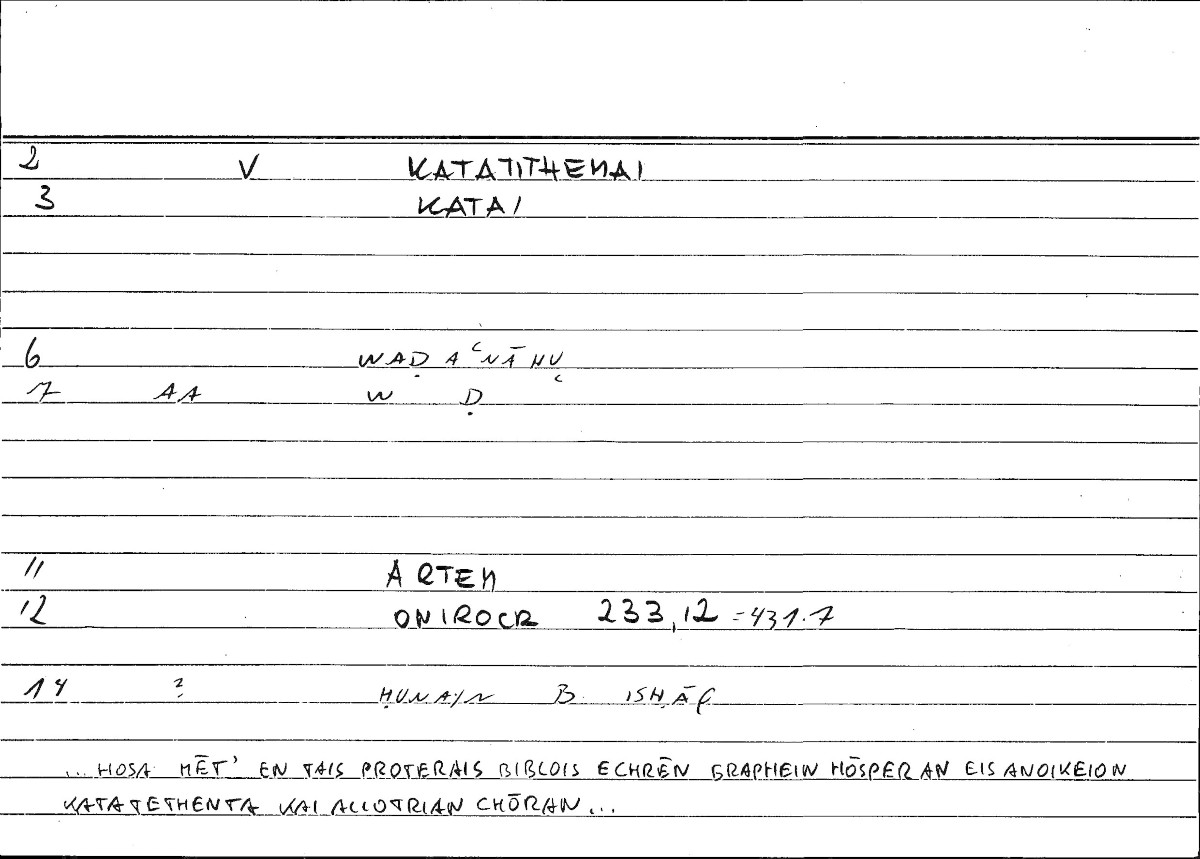 2 V KATATITHENAI
3 KATAI
6 WAḌAʿNĀHU
7 AA W Ḍ
11 ARTEM
12 ONIROCR 233,12 =431.7
14 ? ḤUNAYN B ISḤĀQ
...HOSA MĒT' EN TAIS PROTERAIS BIBLOIS ECHRĒN GRAPHEIN HŌSPER AN EIS ANOIKEION
KATATETHENTA KAI ALLOTRIAN CHŌRAN...